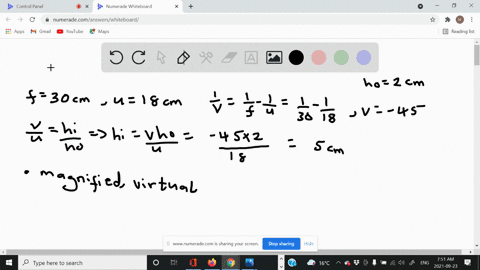 Control Panel
Numerade Whiteboard
numerade.com/answers/whiteboard/
Apps
Gmail
YouTube
Maps
Reading list
h₀ = 2 cm
f = 30 cm , u = 18 cm
1/V = 1/f - 1/u = 1/30 - 1/18 , V = -45
v/u = hi/ho => hi = vho/u = -45x2/18 = 5 cm
• magnified, virtual
www.numerade.com is sharing your screen.
Stop sharing
Hide
Type here to search
16°C
ENG
7:51 AM
2021-09-23